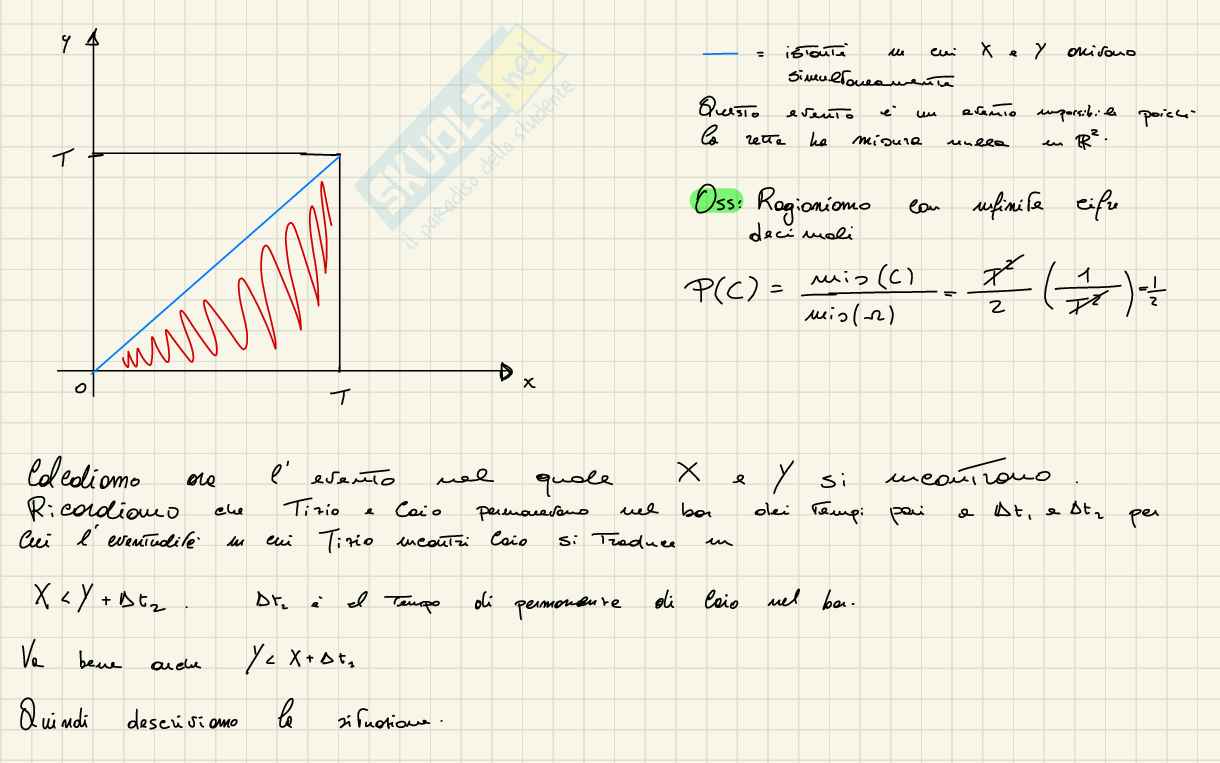 y
T
0
T
x
SKUOLA.net
il paradiso dello studente
= istanti in cui X e Y arrivano
simultaneamente
Questo evento è un evento impossibile poiché
la retta ha misura nulla in ℝ².
Oss: Ragioniamo con infinite cifre
decimali
P(C) = mis(C) / mis(Ω) = T²/2 (1/T²) = 1/2
Calcoliamo ora l'evento nel quale X e Y si incontrano.
Ricordiamo che Tizio e Caio permanevano nel bar dei tempi pari a Δt₁ e Δt₂ per
cui l'eventualità in cui Tizio incontri Caio si traduce in
X < Y + Δt₂. Δt₂ è il tempo di permanenza di Caio nel bar.
Va bene anche Y < X + Δt₁
Quindi descriviamo la situazione.